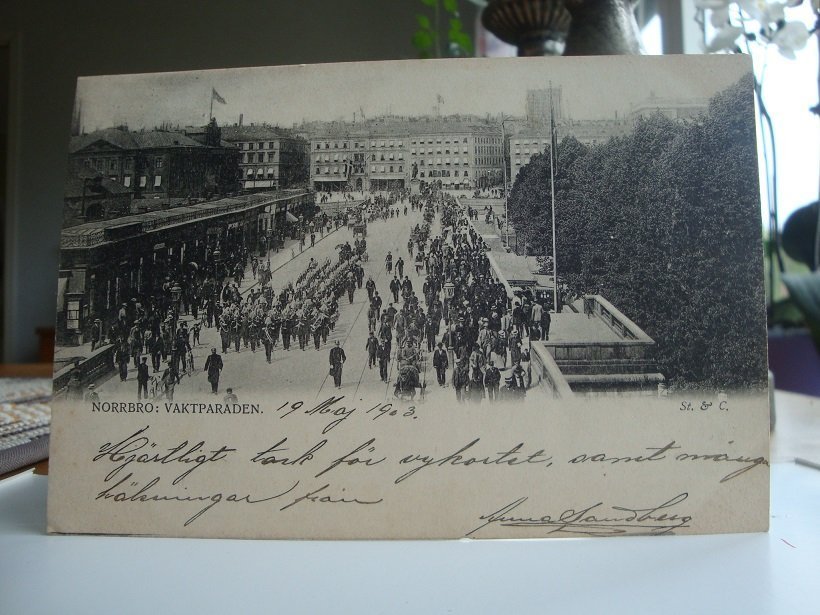 NORRBRO: VAKTPARADEN. 19 Maj 1903. St. & C.
Hjärtligt tack för vykortet, samt många
hälsningar från
Anna Sandberg